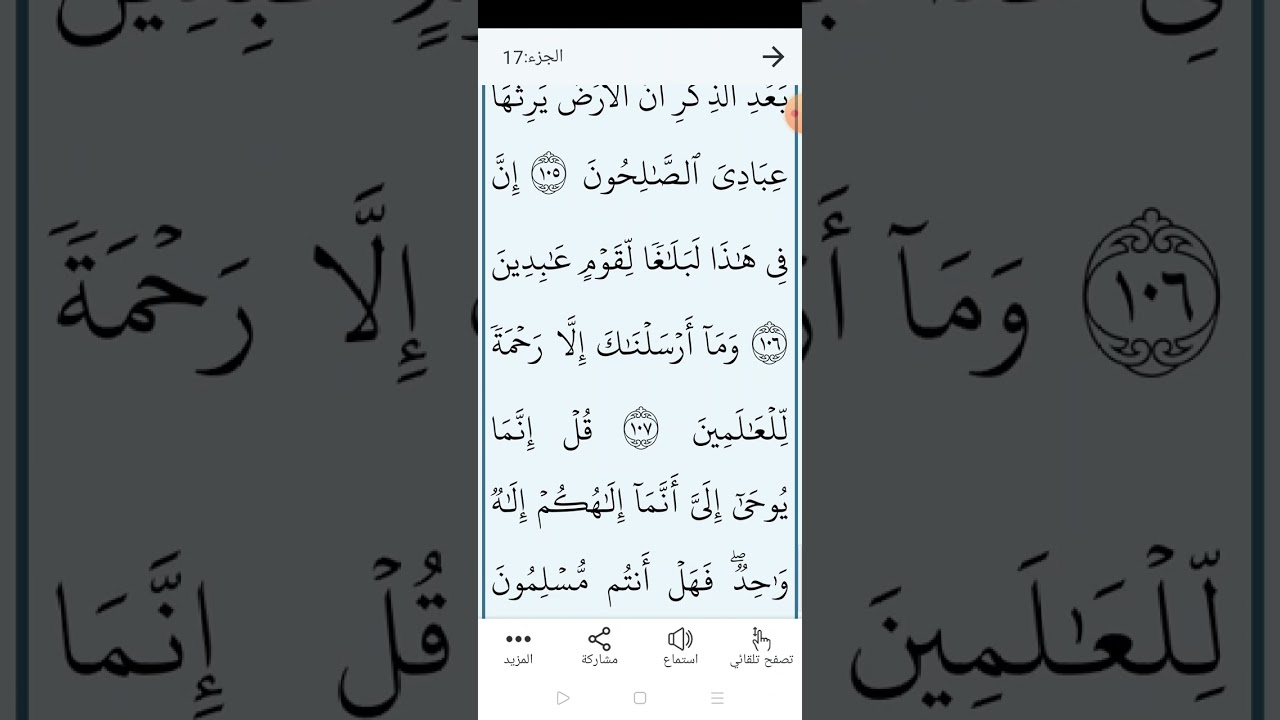 الجزء:17
بَعۡدِ ٱلذِّكۡرِ أَنَّ ٱلۡأَرۡضَ يَرِثُهَا
عِبَادِيَ ٱلصَّـٰلِحُونَ ١٠٥ إِنَّ
فِي هَـٰذَا لَبَلَـٰغٗا لِّقَوۡمٍ عَـٰبِدِينَ
١٠٦ وَمَآ أَرۡسَلۡنَـٰكَ إِلَّا رَحۡمَةٗ
لِّلۡعَـٰلَمِينَ ١٠٧ قُلۡ إِنَّمَا
يُوحَىٰٓ إِلَيَّ أَنَّمَآ إِلَـٰهُكُمۡ إِلَـٰهٞ
وَٰحِدٞۖ فَهَلۡ أَنتُم مُّسۡلِمُونَ
تصفح تلقائي
استماع
مشاركة
المزيد